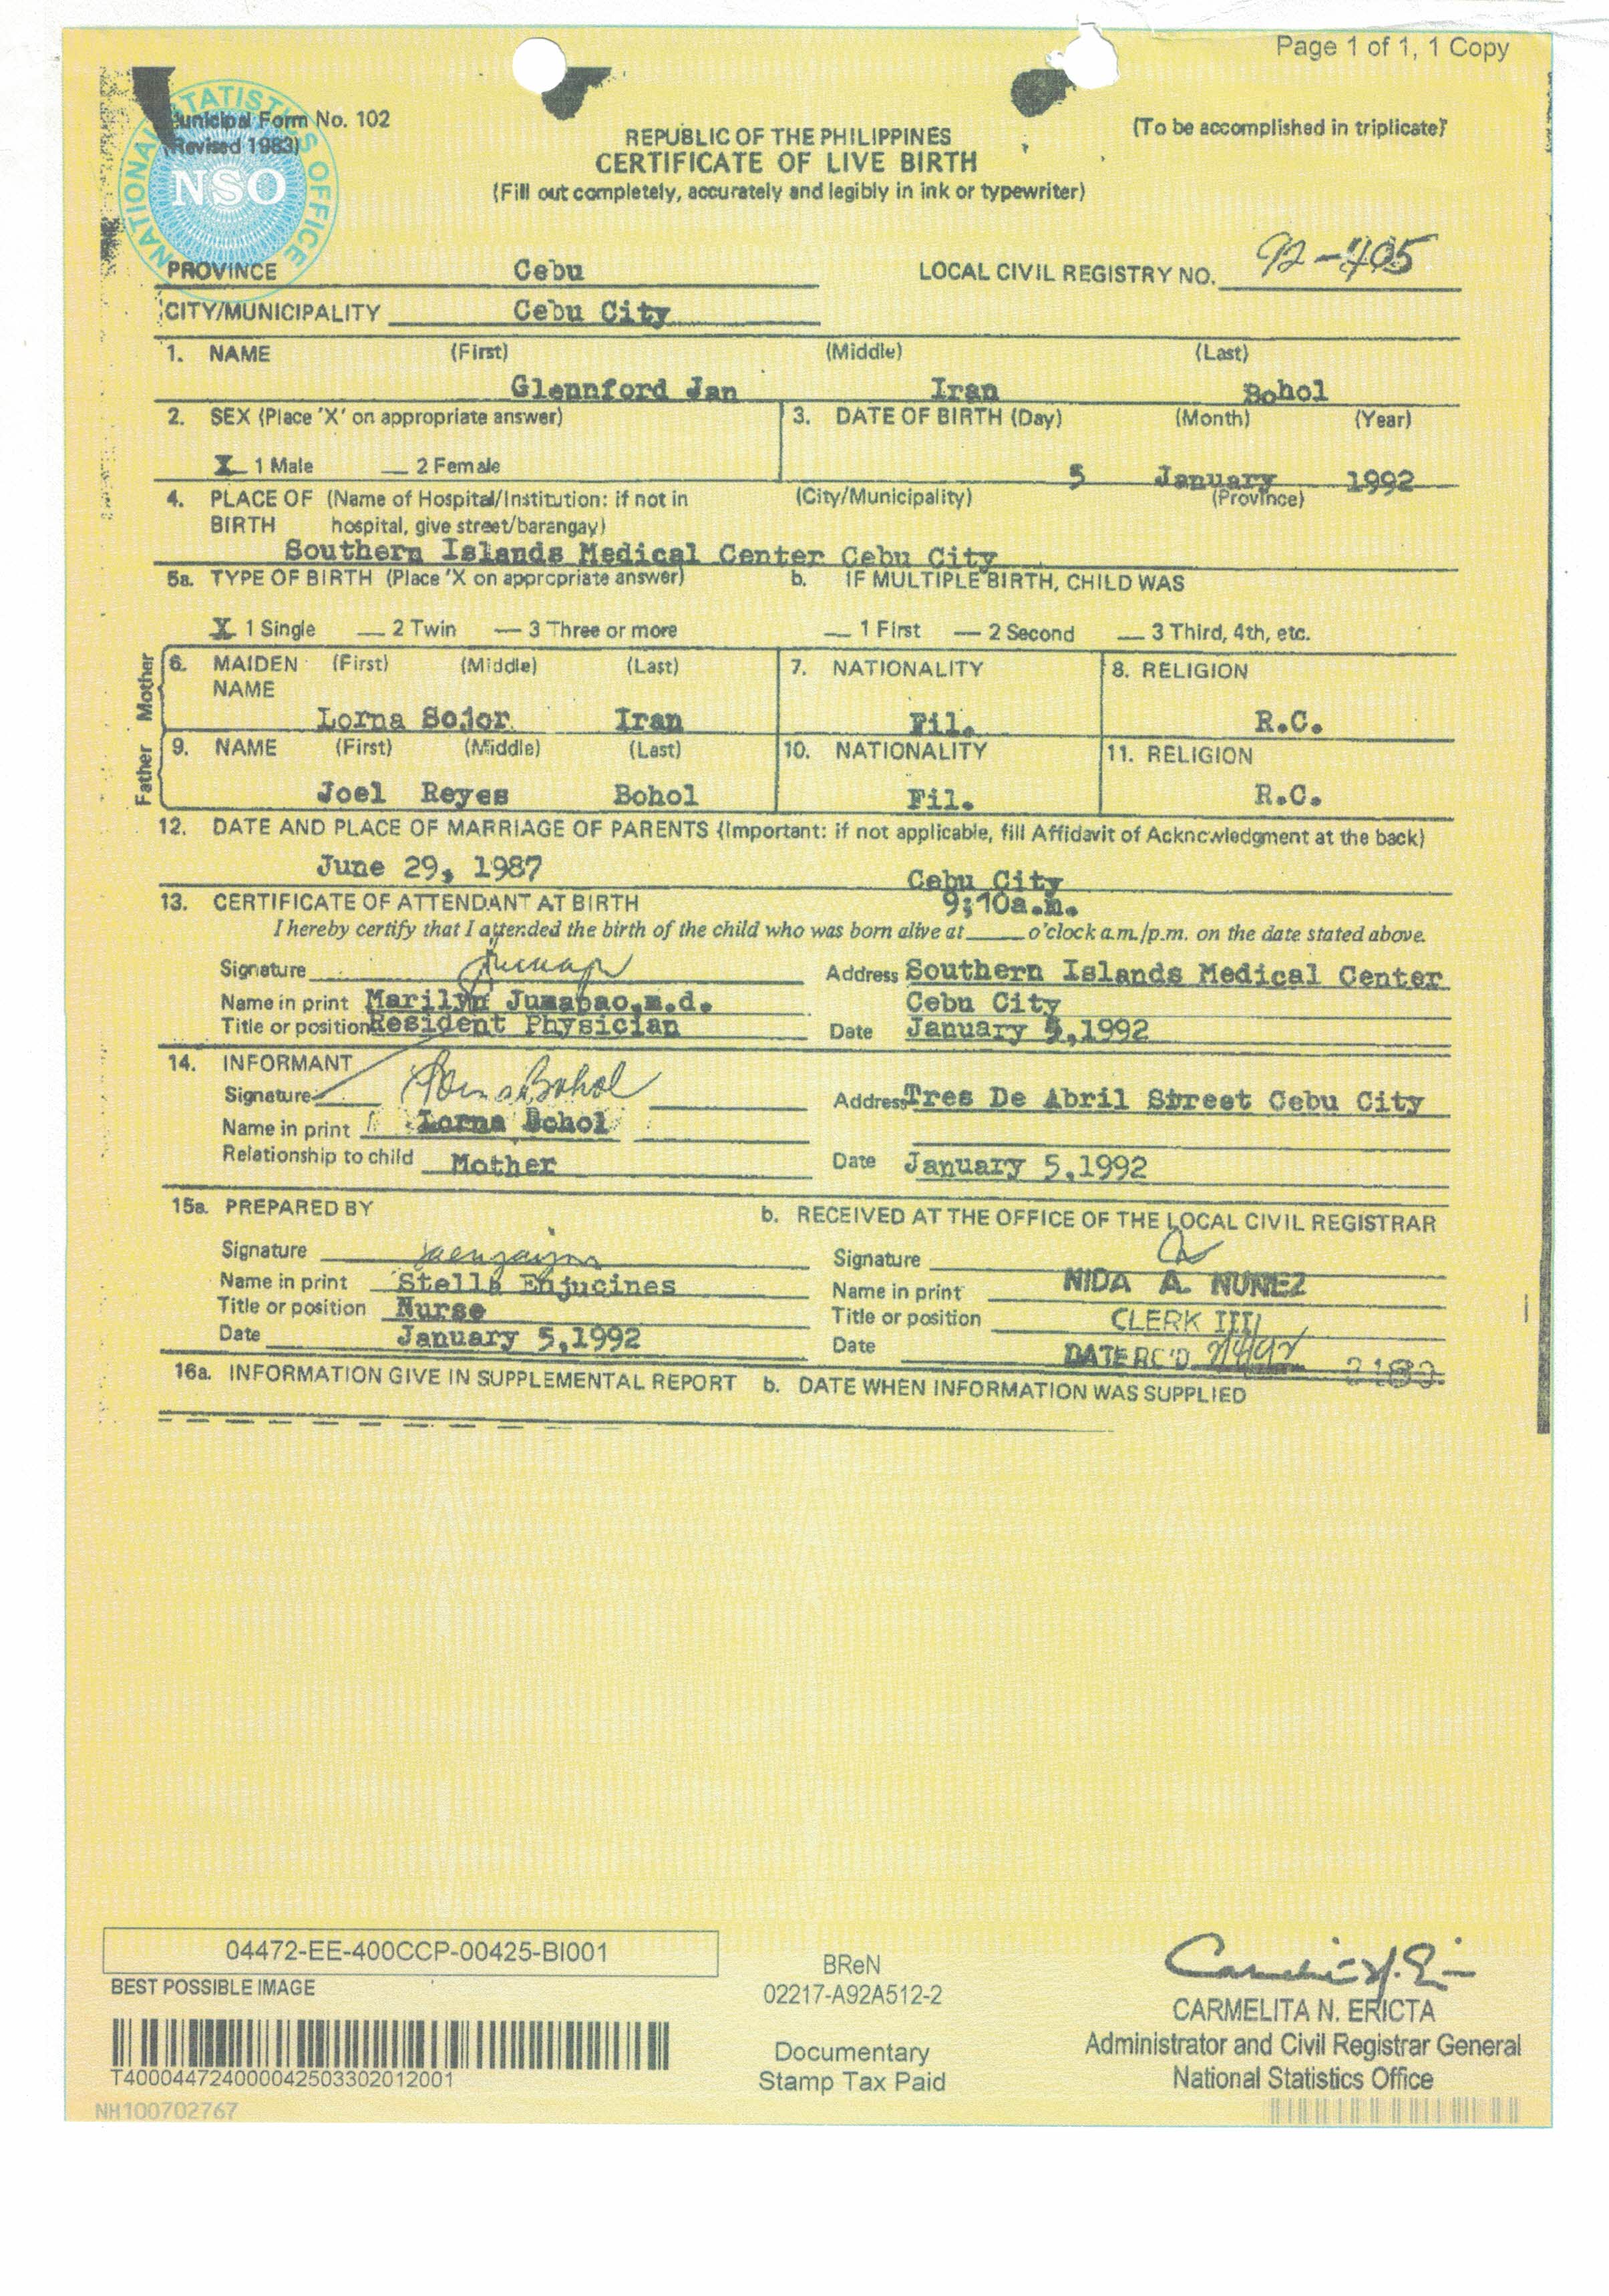 Page 1 of 1, 1 Copy
Municipal Form No. 102
(Revised 1983)
NATIONAL STATISTICS OFFICE
NSO
(To be accomplished in triplicate)
REPUBLIC OF THE PHILIPPINES
CERTIFICATE OF LIVE BIRTH
(Fill out completely, accurately and legibly in ink or typewriter)
PROVINCE Cebu LOCAL CIVIL REGISTRY NO. 92-405
CITY/MUNICIPALITY Cebu City
1. NAME (First) (Middle) (Last)
Glennford Jan Iran Bohol
2. SEX (Place 'X' on appropriate answer) 3. DATE OF BIRTH (Day) (Month) (Year)
X 1 Male __ 2 Female 5 January 1992
4. PLACE OF (Name of Hospital/Institution: if not in (City/Municipality) (Province)
BIRTH hospital, give street/barangay)
Southern Islands Medical Center Cebu City
5a. TYPE OF BIRTH (Place 'X on appropriate answer) b. IF MULTIPLE BIRTH, CHILD WAS
X 1 Single __ 2 Twin __ 3 Three or more __ 1 First __ 2 Second __ 3 Third, 4th, etc.
Mother 6. MAIDEN (First) (Middle) (Last) 7. NATIONALITY 8. RELIGION
NAME
Lorna Sojor Iran Fil. R.C.
Father 9. NAME (First) (Middle) (Last) 10. NATIONALITY 11. RELIGION
Joel Reyes Bohol Fil. R.C.
12. DATE AND PLACE OF MARRIAGE OF PARENTS (Important: if not applicable, fill Affidavit of Acknowledgment at the back)
June 29, 1987 Cebu City
13. CERTIFICATE OF ATTENDANT AT BIRTH 9:10a.m.
I hereby certify that I attended the birth of the child who was born alive at ____ o'clock a.m./p.m. on the date stated above.
Signature Address Southern Islands Medical Center
Name in print Marilyn Jumapao,m.d. Cebu City
Title or position Resident Physician Date January 5,1992
14. INFORMANT
Signature Lorna Bohol Address Tres De Abril Street Cebu City
Name in print Lorna Bohol
Relationship to child Mother Date January 5,1992
15a. PREPARED BY b. RECEIVED AT THE OFFICE OF THE LOCAL CIVIL REGISTRAR
Signature Signature
Name in print Stella Enjucines Name in print NIDA A. NUNEZ
Title or position Nurse Title or position CLERK III
Date January 5,1992 Date DATE RC'D
16a. INFORMATION GIVE IN SUPPLEMENTAL REPORT b. DATE WHEN INFORMATION WAS SUPPLIED
04472-EE-400CCP-00425-BI001
BEST POSSIBLE IMAGE
T400044724000042503302012001
NH100702767
BReN
02217-A92A512-2
Documentary
Stamp Tax Paid
CARMELITA N. ERICTA
Administrator and Civil Registrar General
National Statistics Office